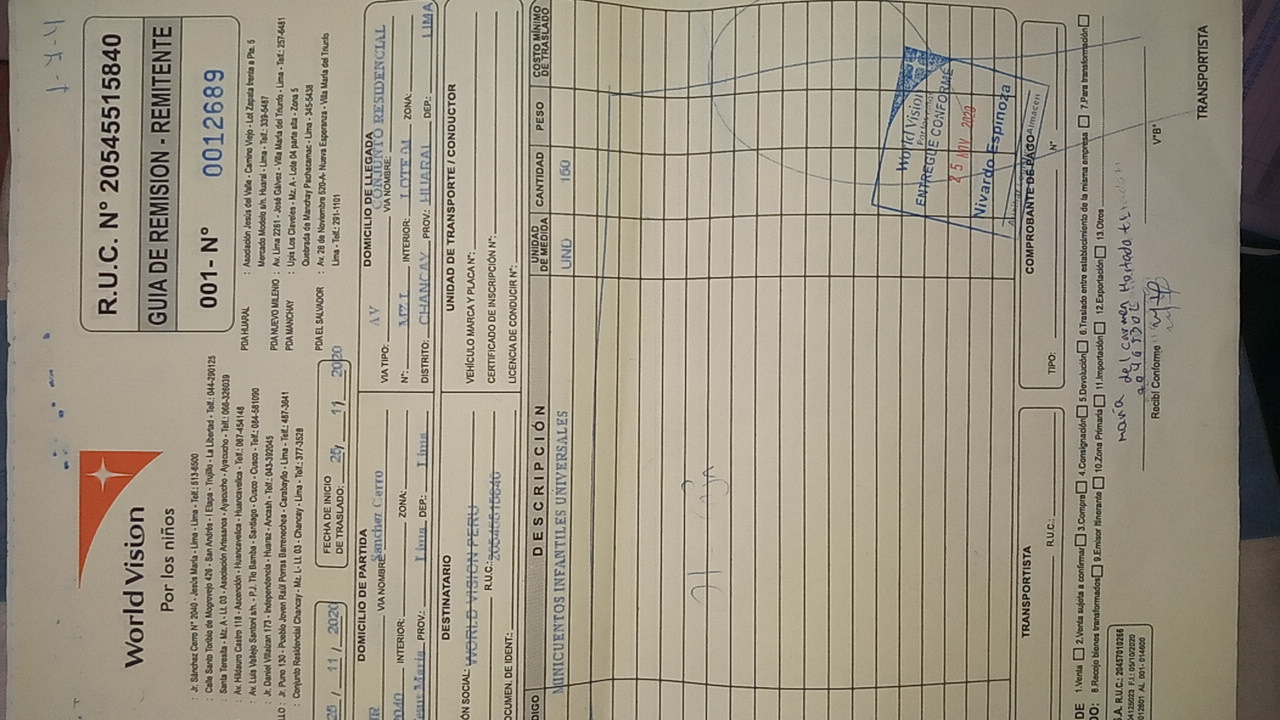 World Vision
Por los niños
R.U.C. N° 20545515840
GUIA DE REMISION - REMITENTE
001- N° 0012689
: Jr. Sánchez Cerro N° 2040 - Jesús María - Lima - Lima - Telf.: 513-6500
: Calle Santo Toribio de Mogrovejo 426 - San Andrés - I Etapa - Trujillo - La Libertad - Telf.: 044-290125
: Santa Teresita - Mz. A - Lt. 03 - Asociación Artesanos - Ayacucho - Ayacucho - Telf.: 066-326039
: Av. Hildauro Castro 118 - Ascención - Huancavelica - Huancavelica - Telf.: 067-454148
: Av. Luis Vallejo Santoni s/n. - P.J. Tio Bamba - Santiago - Cusco - Cusco - Telf.: 084-581090
: Jr. Daniel Villaizan 173 - Independencia - Huaraz - Ancash - Telf.: 043-392045
: Jr. Puno 130 - Pueblo Joven Raúl Porras Barrenechea - Carabayllo - Lima - Telf.: 487-3641
: Conjunto Residencial Chancay - Mz. L - Lt. 03 - Chancay - Lima - Telf.: 377-3528
PDA HUARAL : Asociación Jesús del Valle - Camino Viejo - Lot Zapata frente a Pta. 5
Mercado Modelo s/n. Huaral - Lima - Telf.: 339-5487
PDA NUEVO MILENIO : Av. Lima 2261 - José Gálvez - Villa María del Triunfo - Lima - Telf.: 257-6481
PDA MANCHAY : Upis Los Claveles - Mz. A - Lote 04 parte alta - Zona 5
Quebrada de Manchay Pachacamac - Lima - 345-5438
PDA EL SALVADOR : Av. 26 de Noviembre 520-A- Nueva Esperanza - Villa María del Triunfo
Lima - Telf.: 291-1101
/ 11 / 2020
FECHA DE INICIO DE TRASLADO: 25/ 11 / 2020
DOMICILIO DE PARTIDA
VIA NOMBRE Sanchez Carro
2040 INTERIOR: ZONA:
Jesus Maria PROV.: Lima DEP.: Lima
DOMICILIO DE LLEGADA
VIA TIPO: AV VIA NOMBRE: CONJUNTO RESIDENCIAL
N°: MZ.L INTERIOR: LOTE 04 ZONA:
DISTRITO: CHANCAY PROV.: HUARAL DEP.: LIMA
DESTINATARIO
ÓN SOCIAL: WORLD VISION PERU
R.U.C.: 20545515840
DOCUMEN. DE IDENT.:
UNIDAD DE TRANSPORTE / CONDUCTOR
VEHÍCULO MARCA Y PLACA N°:
CERTIFICADO DE INSCRIPCIÓN N°:
LICENCIA DE CONDUCIR N°:
DIGO DESCRIPCIÓN UNIDAD DE MEDIDA CANTIDAD PESO COSTO MÍNIMO DE TRASLADO
MINICUENTOS INFANTILES UNIVERSALES UND 150
World Vision
Por los niños
ENTREGUE CONFORME
25 NOV 2020
Nivardo Espinoza
Almacen
TRANSPORTISTA
R.U.C.:
COMPROBANTE DE PAGO
TIPO: N°
DE 1.Venta 2.Venta sujeta a confirmar 3.Compra 4.Consignación 5.Devolución 6.Traslado entre establecimiento de la misma empresa 7.Para transformación
DO: 8.Recojo bienes transformados 9.Emisor Itinerante 10.Zona Primaria 11.Importación 12.Exportación 13.Otros
maria del Carmen Hurtado
Recibí Conforme
V°B°
TRANSPORTISTA
S.A. R.U.C.: 20437010266
F.I.: 05/10/2020
AL 001- 014600